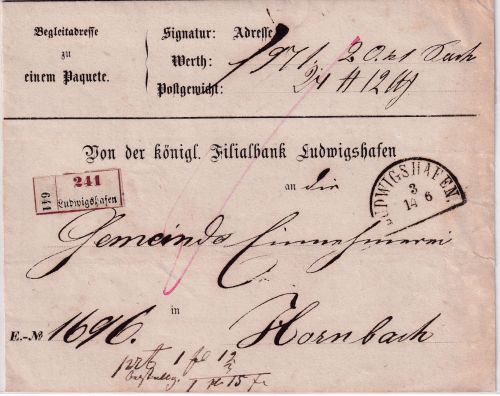 Begleitadresse
zu
einem Paquete.
Signatur: Adresse
Werth: 1971.
Postgewicht:
Von der königl. Filialbank Ludwigshafen
an die
149 241 Ludwigshafen
LUDWIGSHAFEN.
3
14 6
Gemeinde Einnehmerei
in
E.-№ 1696. Hornbach